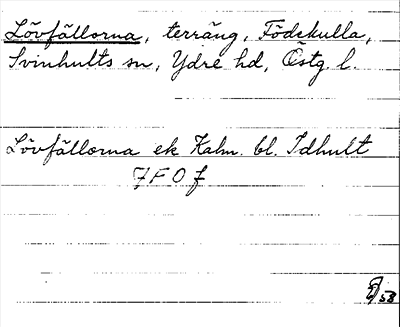 Lövfällorna, terräng, Födekulla,
Svinhults sn, Ydre hd, Östg. l.
Lövfällorna ek Kalm. bl. Idhult
7 F 0 f
53